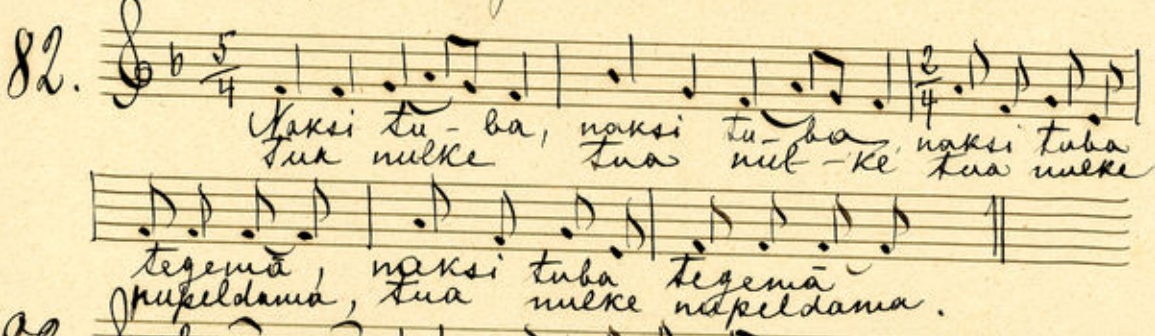 82.
5/4 2/4
Naksi tu-ba, naksi tu-ba naksi tuba
tua nulke tua nul-ke tua nulke
tegemä, naksi tuba tegemä
nupeldama, tua nulke nupeldama.